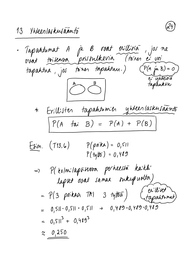 13 Yhteenlaskusääntö
24
• Tapahtumat A ja B ovat erillisiä, jos ne
ovat toisensa poissulkevia (toinen ei voi
tapahtua, jos toinen tapahtuu).
P(A ja B) = 0
A B
+ Erillisten tapahtumien yhteenlaskusääntö
P(A tai B) = P(A) + P(B)
Esim. (T13.6) P(poika) = 0,511
P(tyttö) = 0,489
P(kolmilapsisessa perheessä kaikki
lapset ovat samaa sukupuolta)
= P(3 poikaa TAI 3 tyttöä)
erilliset
tapahtumat
= 0,511·0,511·0,511 + 0,489·0,489·0,489
= 0,511³ + 0,489³
≈ 0,250